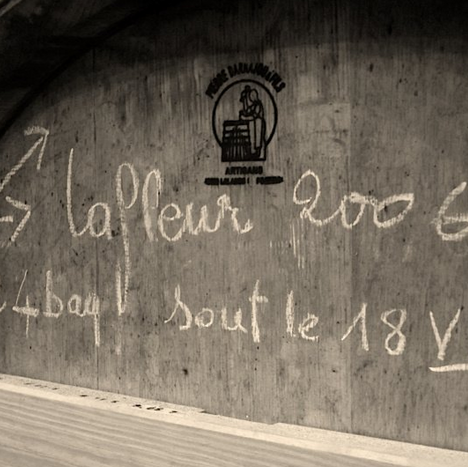 PIERRE DARNAJOU & FILS
ARTISANS
lafleur 2006
4 baq sout le 18 V